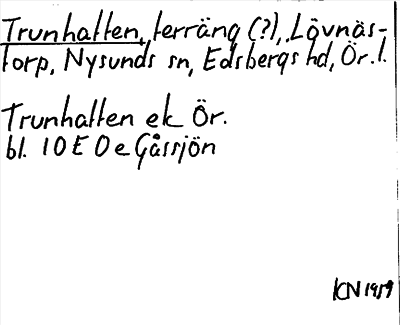 Trunhatten, terräng (?), Lövnäs-
torp, Nysunds sn, Edsbergs hd, Ör. l.
Trunhatten ek Ör.
bl. 10 E 0 e Gåssjön
KN 1959